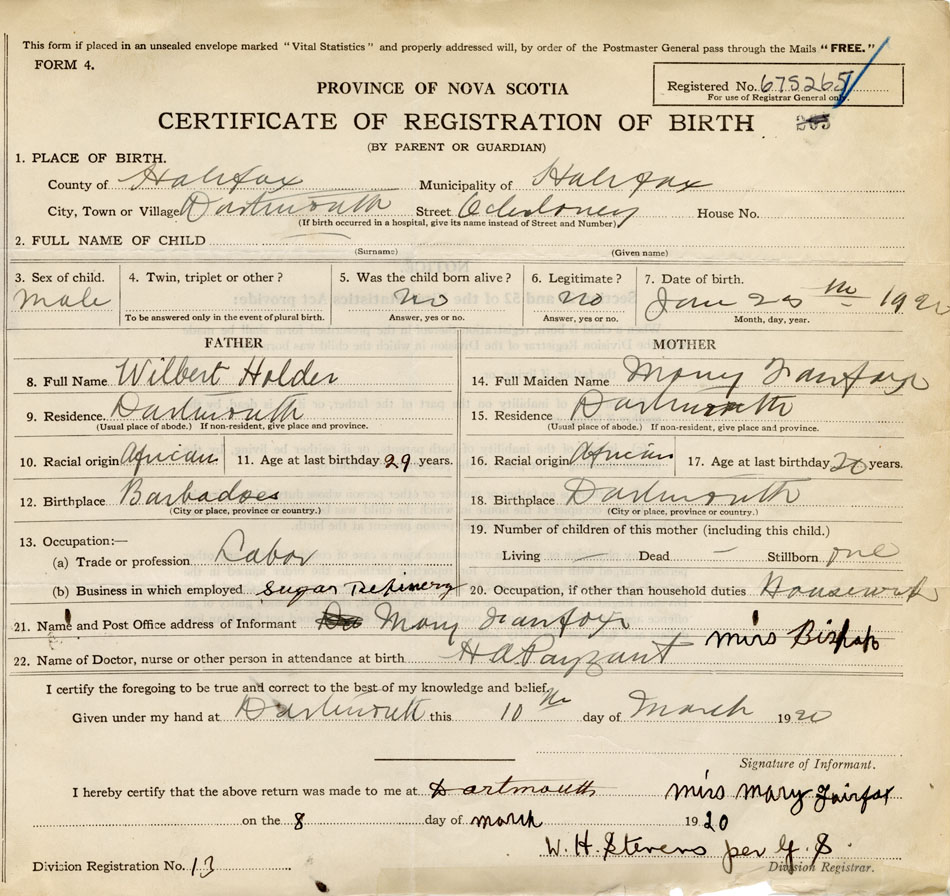 This form if placed in an unsealed envelope marked "Vital Statistics" and properly addressed will, by order of the Postmaster General pass through the Mails "FREE."
FORM 4.
PROVINCE OF NOVA SCOTIA
Registered No. 675265
For use of Registrar General only.
CERTIFICATE OF REGISTRATION OF BIRTH
(BY PARENT OR GUARDIAN)
1. PLACE OF BIRTH.
County of Halifax Municipality of Halifax
City, Town or Village Dartmouth Street House No.
(If birth occurred in a hospital, give its name instead of Street and Number)
2. FULL NAME OF CHILD
(Surname) (Given name)
3. Sex of child. 4. Twin, triplet or other? 5. Was the child born alive? 6. Legitimate? 7. Date of birth.
Male no no 1920
To be answered only in the event of plural birth. Answer, yes or no. Answer, yes or no. Month, day, year.
FATHER MOTHER
8. Full Name Wilbert Holder 14. Full Maiden Name Mary Fairfax
9. Residence. Dartmouth 15. Residence Dartmouth
(Usual place of abode.) If non-resident, give place and province. (Usual place of abode.) If non-resident, give place and province.
10. Racial origin African 11. Age at last birthday 29 years. 16. Racial origin African 17. Age at last birthday 20 years.
12. Birthplace Barbadoes 18. Birthplace Dartmouth
(City or place, province or country.) (City or place, province or country.)
13. Occupation:— 19. Number of children of this mother (including this child.)
(a) Trade or profession Labor Living — Dead — Stillborn one
(b) Business in which employed Sugar Refinery 20. Occupation, if other than household duties Housework
21. Name and Post Office address of Informant Mary Fairfax
22. Name of Doctor, nurse or other person in attendance at birth H A Payzant Miss Bishop
I certify the foregoing to be true and correct to the best of my knowledge and belief.
Given under my hand at Dartmouth this 10th day of March 1920
Signature of Informant.
I hereby certify that the above return was made to me at Dartmouth Miss Mary Fairfax
on the 8 day of march 1920
W. H. Stevens per G. S
Division Registration No. 13 Division Registrar.